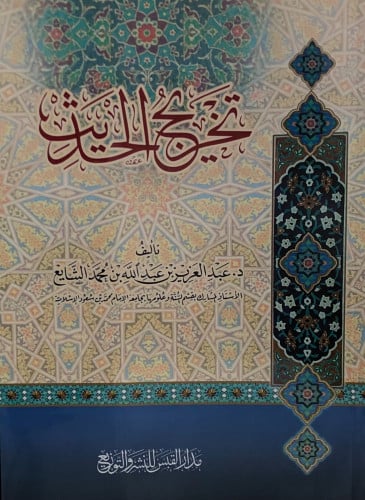 تخريج الحديث
تأليف
د. عبد العزيز بن عبد الله بن محمد الشايع
الأستاذ المشارك بقسم السنة وعلومها بجامعة الإمام محمد بن سعود الإسلامية
مدار القبس للنشر والتوزيع